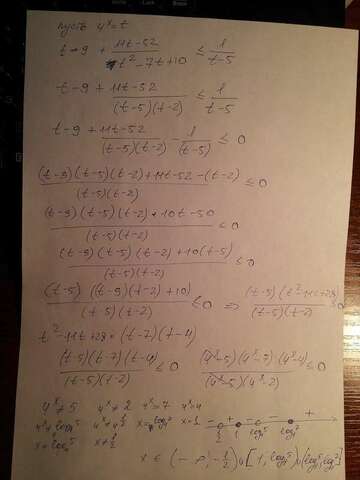 пусть 4^x = t
t - 9 + (11t-52)/(t^2-7t+10) ≤ 1/(t-5)
t - 9 + (11t-52)/((t-5)(t-2)) ≤ 1/(t-5)
t - 9 + (11t-52)/((t-5)(t-2)) - 1/(t-5) ≤ 0
((t-9)(t-5)(t-2)+11t-52-(t-2))/((t-5)(t-2)) ≤ 0
((t-9)(t-5)(t-2)+10t-50)/((t-5)(t-2)) ≤ 0
((t-9)(t-5)(t-2)+10(t-5))/((t-5)(t-2)) ≤ 0
((t-5)((t-9)(t-2)+10))/((t-5)(t-2)) ≤ 0 ⇒ ((t-5)(t^2-11t+28))/((t-5)(t-2)) ≤ 0
t^2-11t+28 = (t-7)(t-4)
((t-5)(t-7)(t-4))/((t-5)(t-2)) ≤ 0 ((4^x-5)(4^x-7)(4^x-4))/((4^x-5)(4^x-2)) ≤ 0
4^x ≠ 5 4^x ≠ 2 4^x = 7 4^x = 4
x = 1
x ∈ (-∞, -1/2) ∪ [1, log_4 5) ∪ (log_4 5, log_4 7]